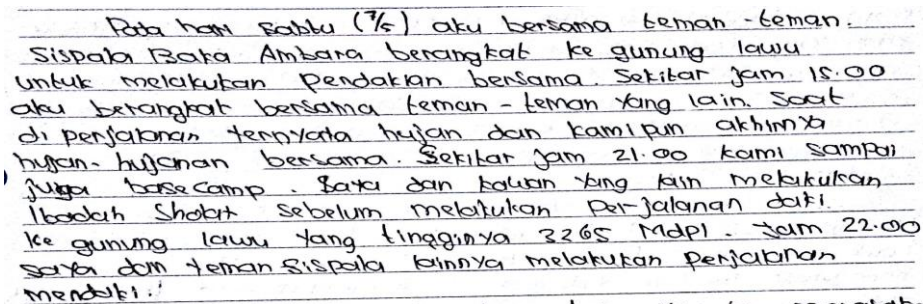 Pada hari sabtu (7/5) aku bersama teman-teman.
Sispala Bara Ambara berangkat ke gunung lawu
untuk melakukan Pendakian bersama. Sekitar jam 15.00
aku berangkat bersama teman-teman yang lain. Saat
di perjalanan ternyata hujan dan kamipun akhirnya
hujan-hujanan bersama. Sekitar jam 21.00 kami sampai
juga basecamp. Saya dan kawan yang lain melakukan
Ibadah Sholat sebelum melakukan Perjalanan daki
ke gunung lawu yang tingginya 3265 Mdpl. Jam 22.00
saya dan teman Sispala lainnya melakukan perjalanan
mendaki.